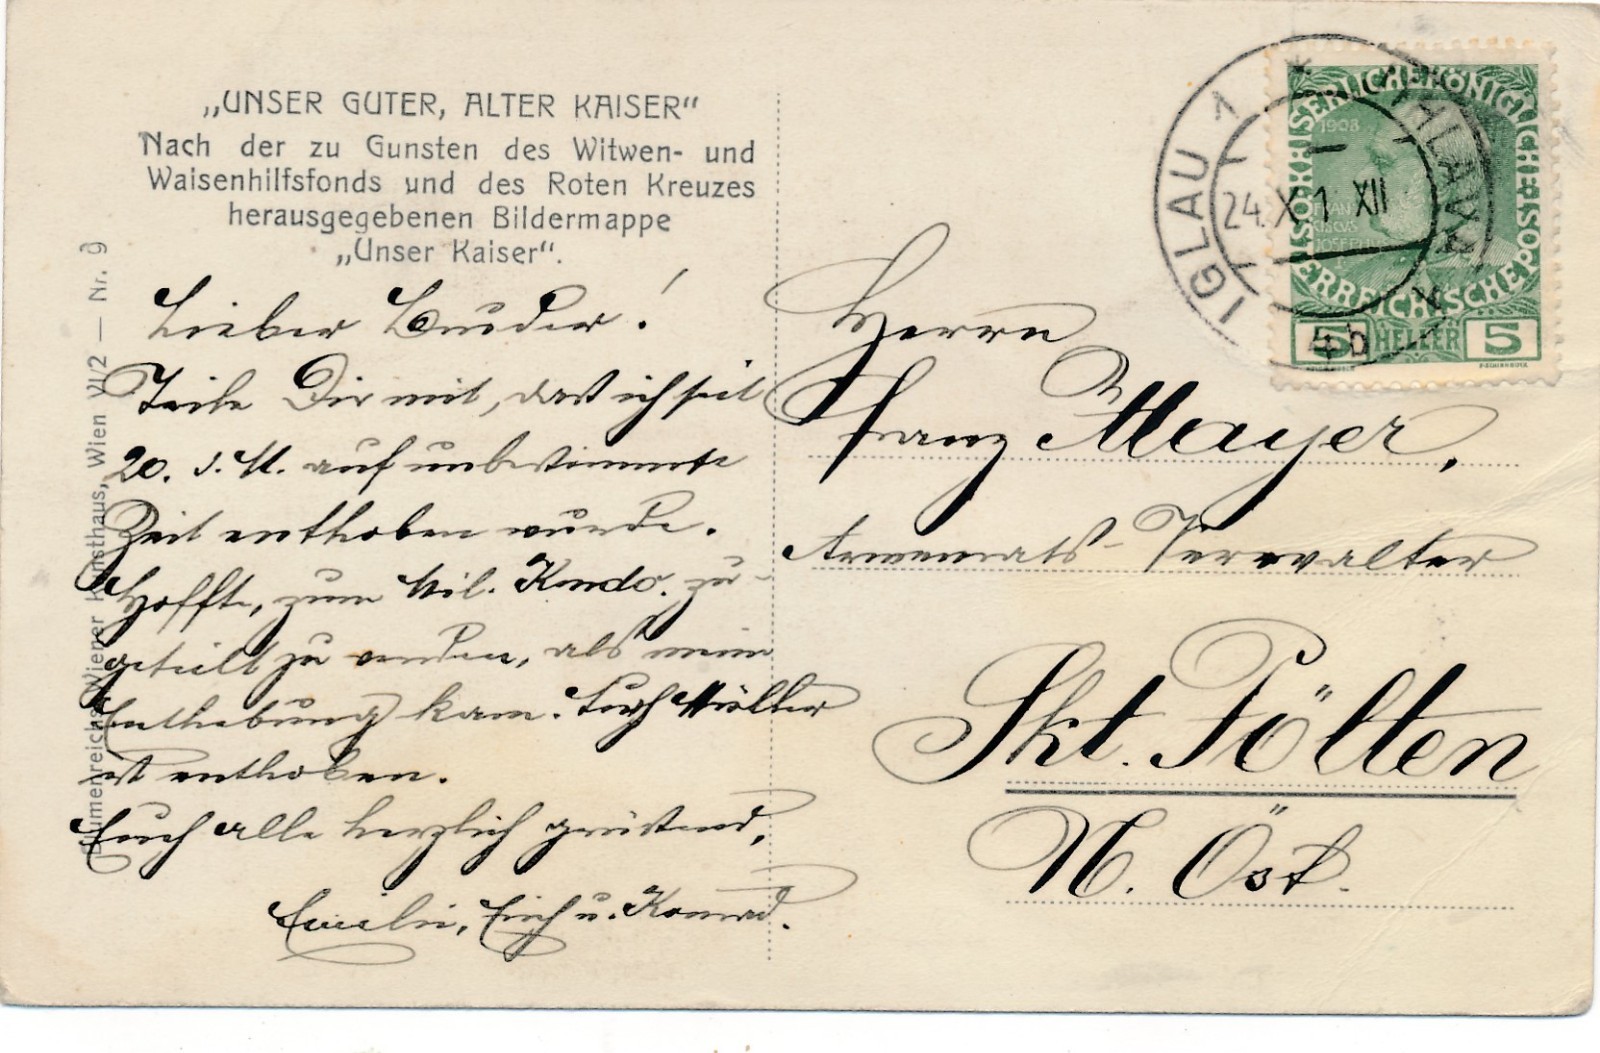 „UNSER GUTER, ALTER KAISER“
Nach der zu Gunsten des Witwen- und
Waisenhilfsfonds und des Roten Kreuzes
herausgegebenen Bildermappe
„Unser Kaiser“.
Blümenreichs Wiener Kunsthaus, Wien VI/2 — Nr. 9
Lieber Bruder!
Teile Dir mit, dass ich seit
20. d. M. auf unbestimmte
Zeit enthoben wurde.
Hoffte, zum Mil. Kmdo. zu-
geteilt zu werden, als meine
Enthebung kam. Auch Müller
ist enthoben.
Euch alle herzlich grüssend,
Emilie, Erich u. Konrad.
IGLAU 1 * JIHLAVA
24.X 1 XII
4b
KAISERLICHE KÖNIGLICHE ÖSTERREICHISCHE POST
1908
FRAN
CISCUS
JOSEPH
5 HELLER 5
Herrn
Franz Mayer,
Armenrats-Verwalter
Skt. Pölten
N. Öst.